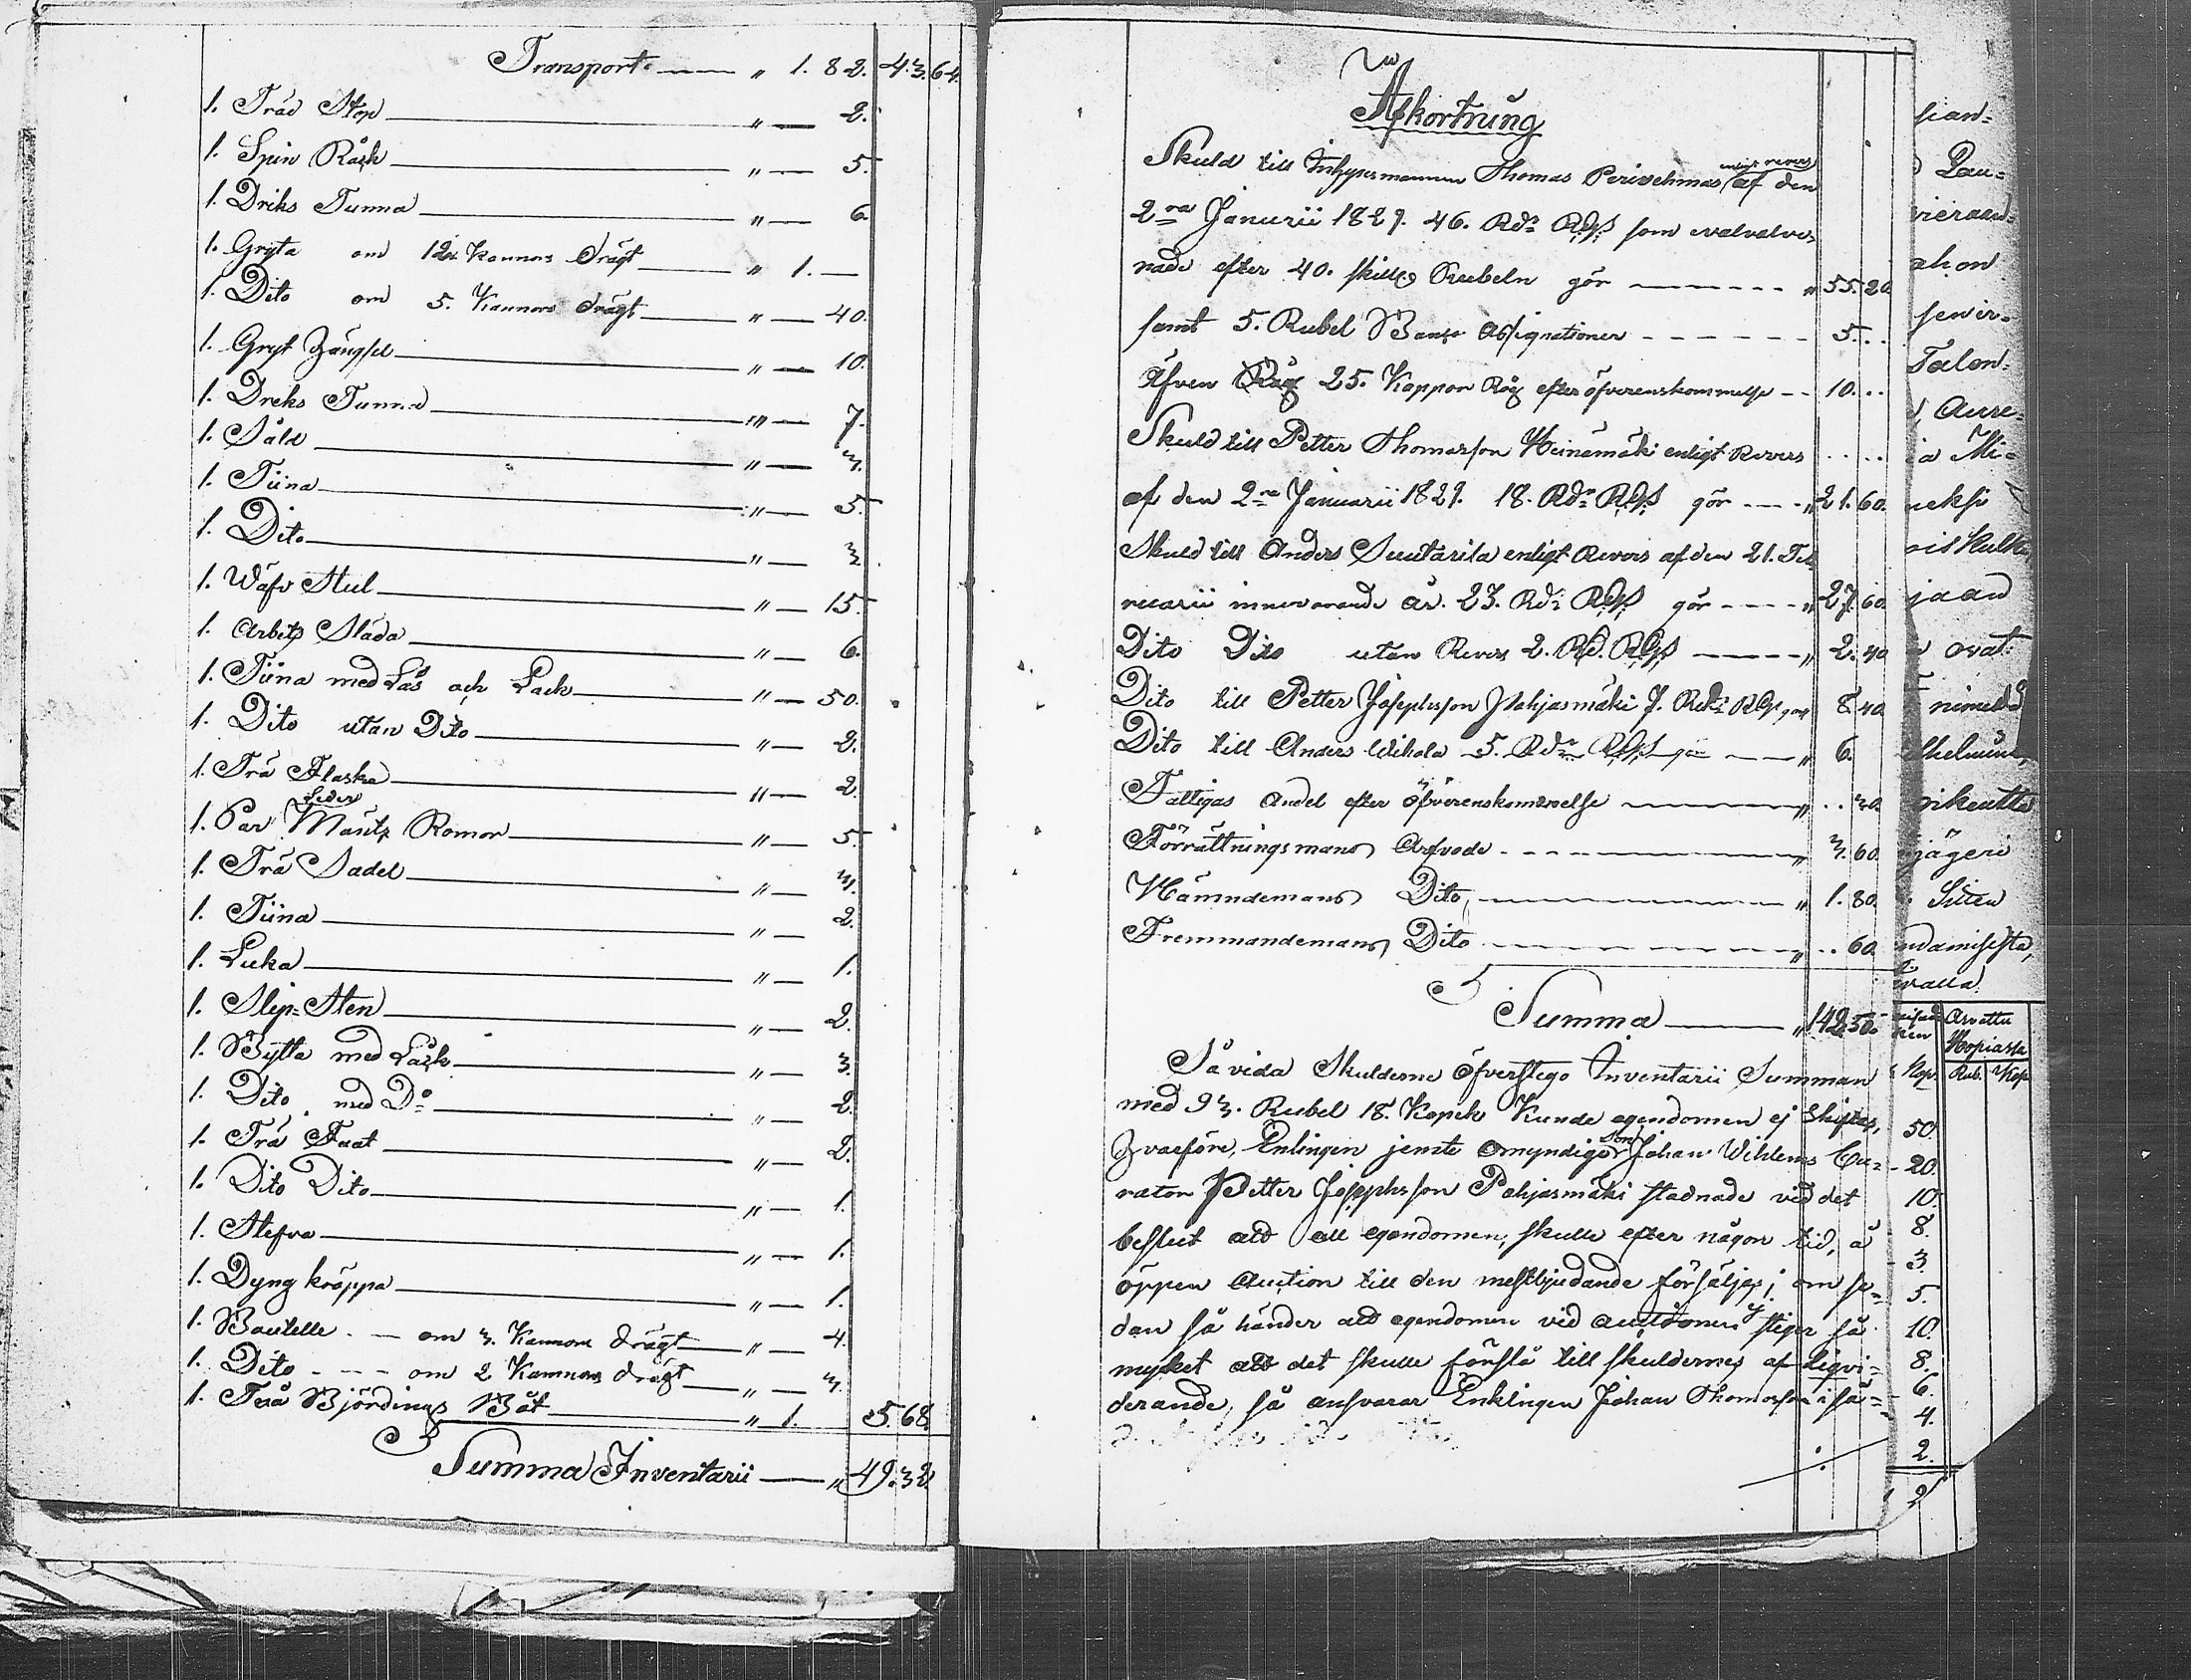 Transport — " 1. 82. 43. 64.
1. Träd Stop — " — 2.
1. Spin Råck — " — 5.
1. Driks Tunna — " — 6.
1. Gryta om 12. Kannors drägt — " 1. —
1. Dito om 5. Kannors drägt — " — 40.
1. Gryt Hängsel — " — 10.
1. Dreks Tunna — " — 7.
1. Såld — " — 3.
1. Tiina — " — 5.
1. Dito — " — 3.
1. Wäfv Stul — " — 15.
1. Arbets Släda — " — 6.
1. Tiina med Lås och Lack — " — 50.
1. Dito utan Dito — " — 2.
1. Trä Flaska — " — 2.
1. Par Leder Romor — " — 5.
1. Trä Sadel — " — 3.
1. Tiina — " — 2.
1. Luka — " — 1.
1. Slip-Sten — " — 2.
1. Bytta med Låck — " — 3.
1. Dito med Do — " — 2.
1. Trä Faat — " — 2.
1. Dito Dito — " — 1.
1. Stefva — " — 1.
1. Dyng kröppa — " — 1.
1. Boutelle - — om 3. Kannors drägt — " — 4.
1. Dito - - - om 2 Kannors drägt — " — 3.
1. Två Björdings Båt — " 1. 5. 68.
Summa Inventarii — " 49. 32.
Afkortning
Skuld till Inhysesmannen Thomas enligt revers af den
2ra Janurii 1829. 46. Rdr RGS som
nade efter 40. skill Rubeln gör - - - - " 55. 20.
samt 5. Rubel Banco Assignationer - - - - - 5. ..
Äfven 25. Kappor Råg efter öfverenskommelse - - 10. ..
Skuld till Petter Thomasson Heinämäki enligt Revers . . . .
af den 2ra Januarii 1829. 18. Rdr RGS gör - - - " 21. 60.
Skuld till Anders Suutarila enligt Revers af den 21. Feb
ruarii innevarande år. 23. Rdr RGS gör - - - " 27. 60.
Dito Dito utan Revers 2. Rd. RGS — " 2. 40
Dito till Petter Josephsson Pohjasmäki 7. Rdr RGS gör 8. 40.
Dito till Anders Wihola 5. Rdr RGS gör — " 6.
Fattigas andel efter öfverenskommelse — " . . 30.
Förrättningsmans Arfvode - - - — " 3. 60.
Nämndemans Dito, — " 1. 80.
Fremmandemans Dito — " . . 60.
Summa — " 142. 50.
Så vida Skulderne öfverstego Inventarii Summan
med 93. Rubel 18. Kopek Kunde egendomen ej skiftas,
hvarföre, Enlingen jemte omyndige son Johan Wihlems Cu-
rator Petter Josephsson Pohjasmäki stadnade vid det
beslut att all egendomen, skulle efter någon tid, å
öppen auction till den mestbjudande försäljas; om se-
dan så händer att egendomen vid auctionen stiger så
mycket att det skulle förslå till skuldernes af Liqvi-
derande, så ansvarar Enklingen Johan Thomasson i så-
sian-
Lau-
ahon
Talon.
Mi-
jaan
ovat
nimeltä
jägeri
Sitten
valla.
Arvattu
Kop. Rub. Kop.
50.
20.
10.
8.
3.
5.
10.
8.
6.
4.
2.
2